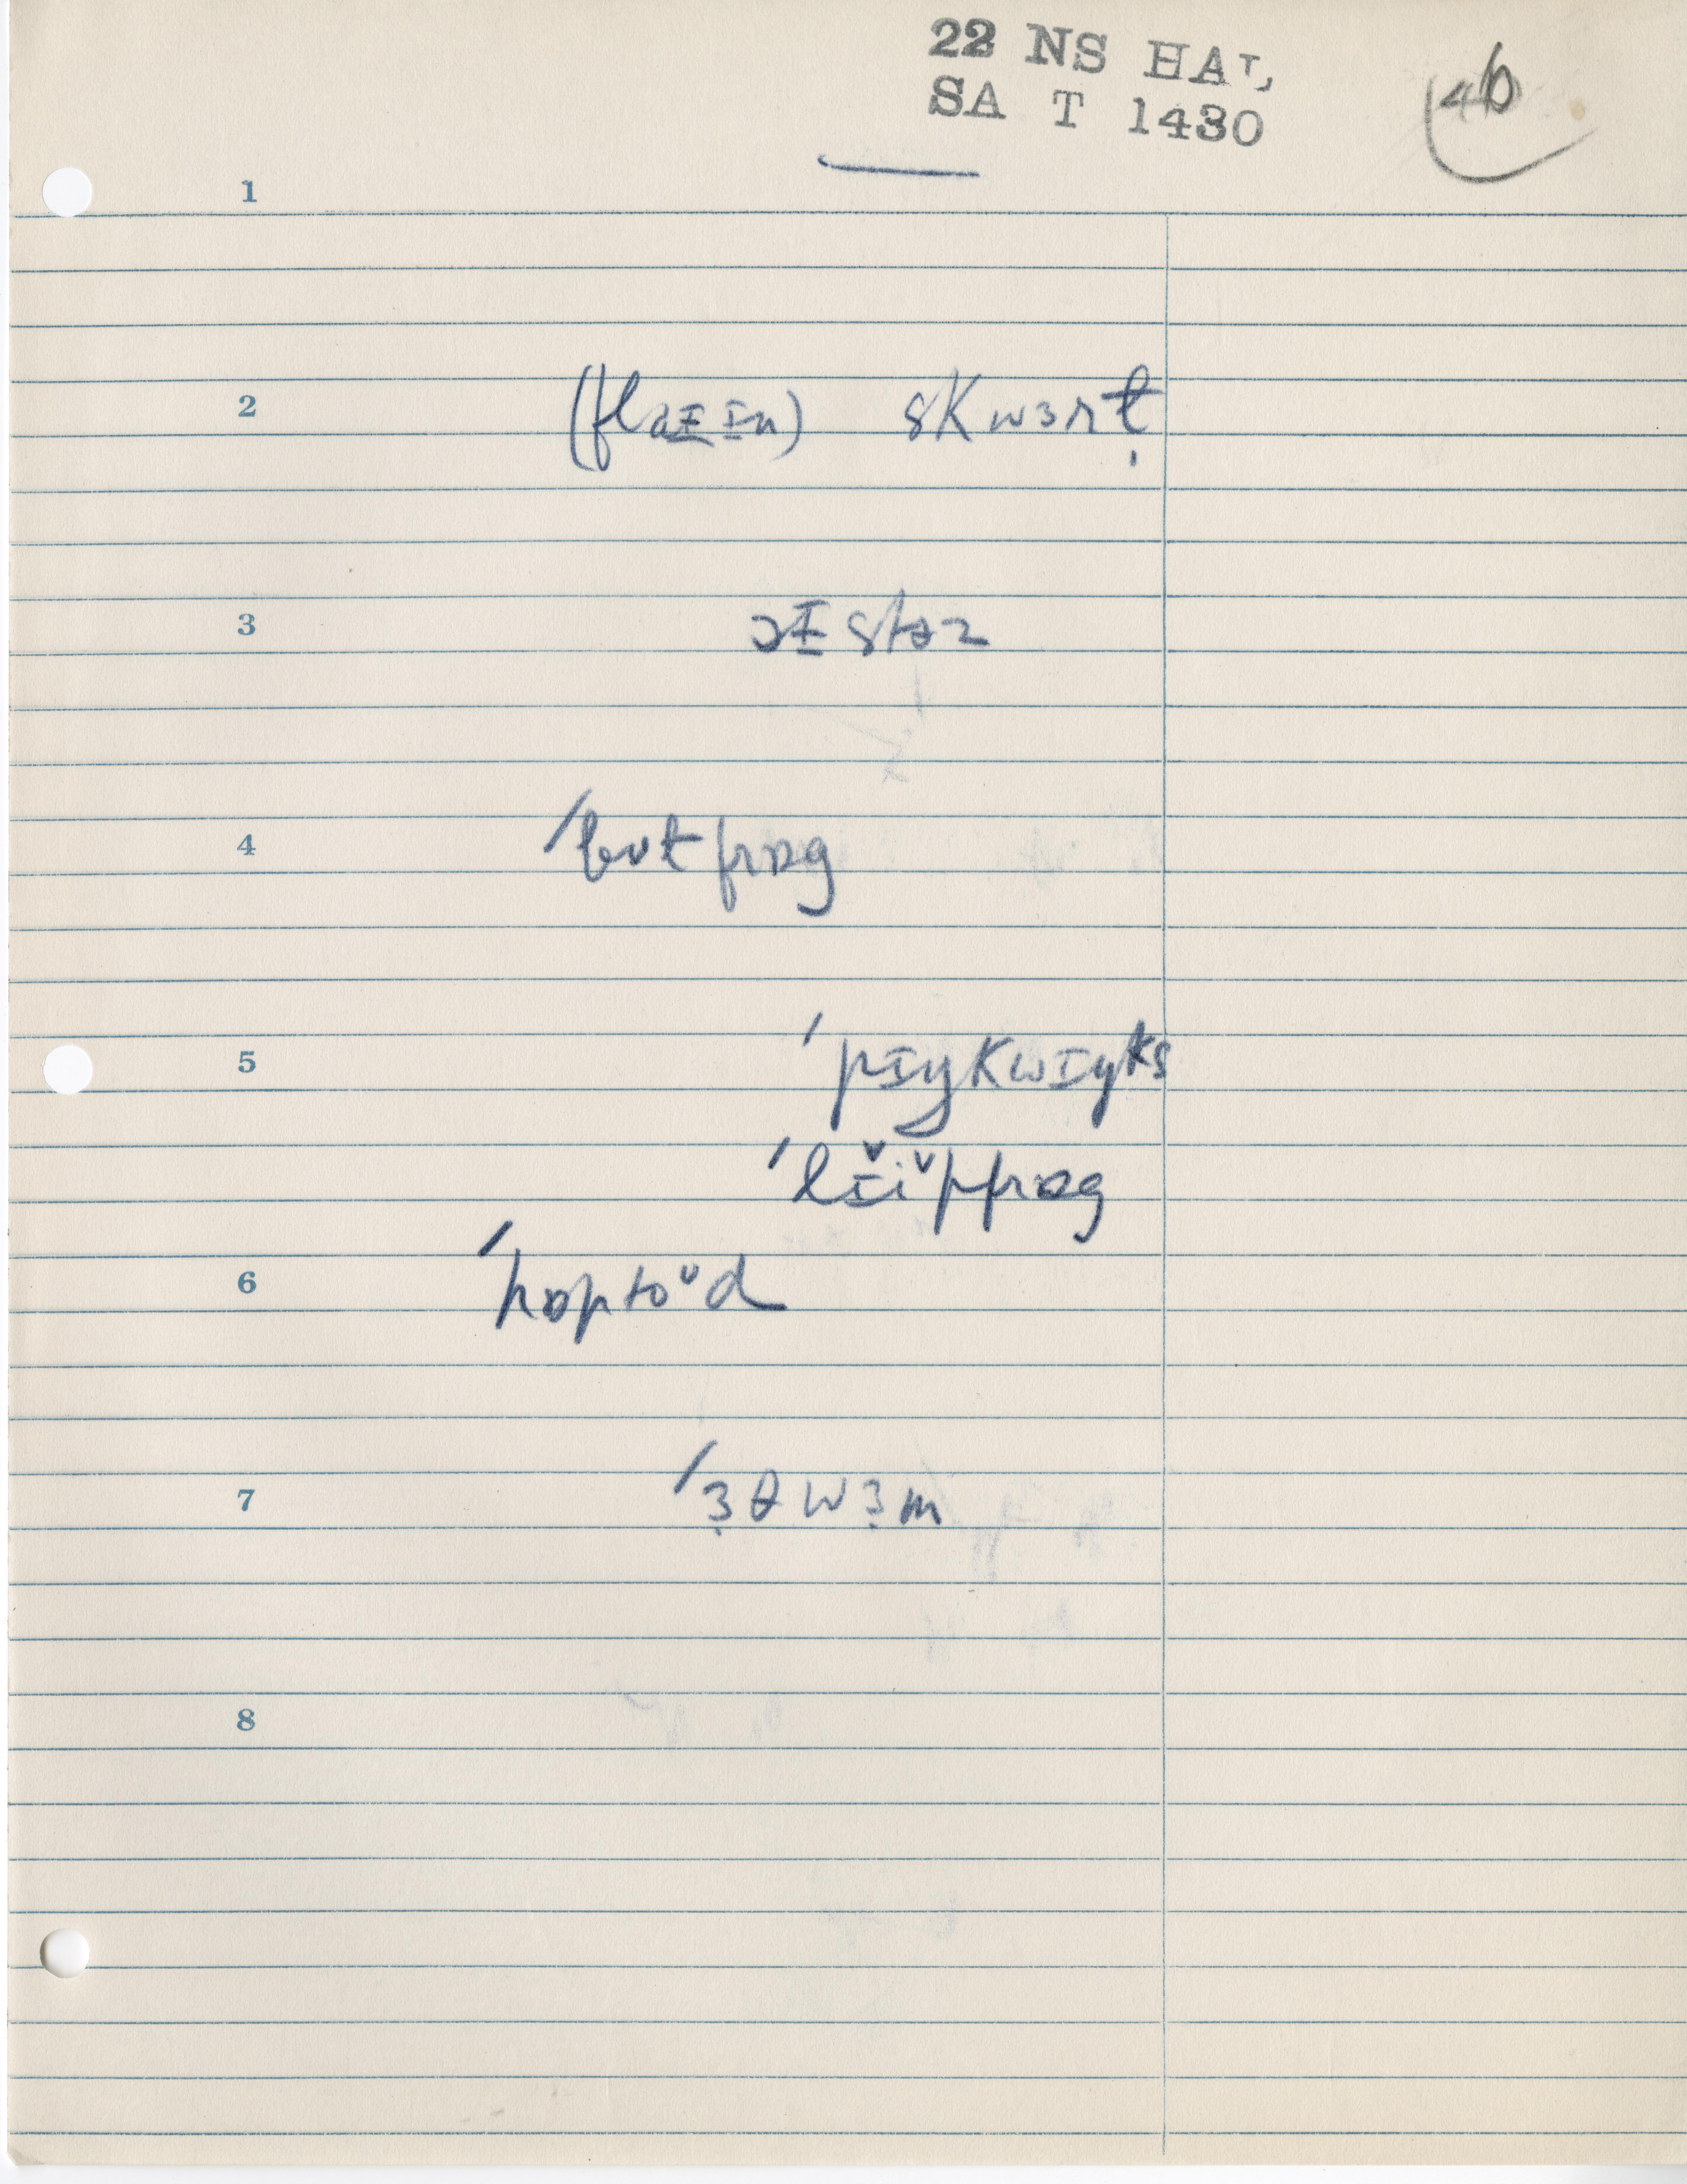 22 NS HAL
SA T 1430
46
1
2 (flaɪɪn) skwɜrɫ̩
3 ɔɪstəz
4 ˈbʊɫfrɒg
5 ˈpɪykwɪyks
ˈlɪ̆ĭpfrɒg
6 ˈhɒptoᶷd
7 ˈɜ̣θwɜ̣m
8